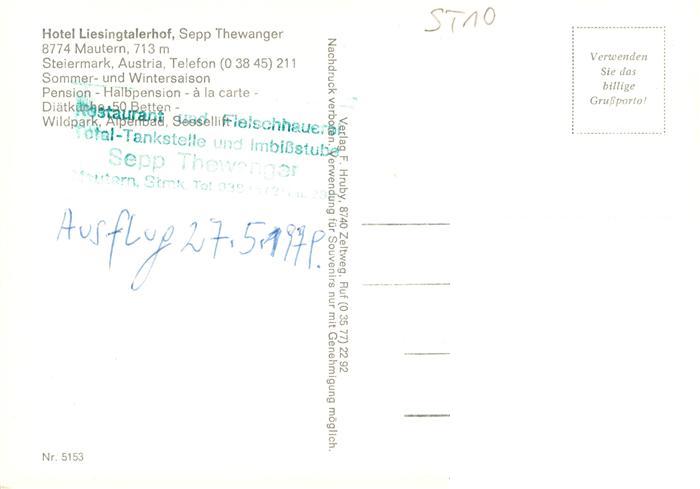 Hotel Liesingtalerhof, Sepp Thewanger
8774 Mautern, 713 m
Steiermark, Austria, Telefon (0 38 45) 211
Sommer- und Wintersaison
Pension - Halbpension - à la carte -
Diätküche-50 Betten -
Wildpark, Alpenbad, Sessellift
Restaurant und Fleischhauerei
Total-Tankstelle und Imbißstube
Sepp Thewanger
Mautern, Stmk. Tel.
Ausflug 27.5.1979.
Nr. 5153
Nachdruck verboten. Verwendung für Souvenirs nur mit Genehmigung möglich.
Verlag F. Hruby, 8740 Zeltweg, Ruf (0 35 77) 22 92
ST10
Verwenden
Sie das
billige
Grußporto!